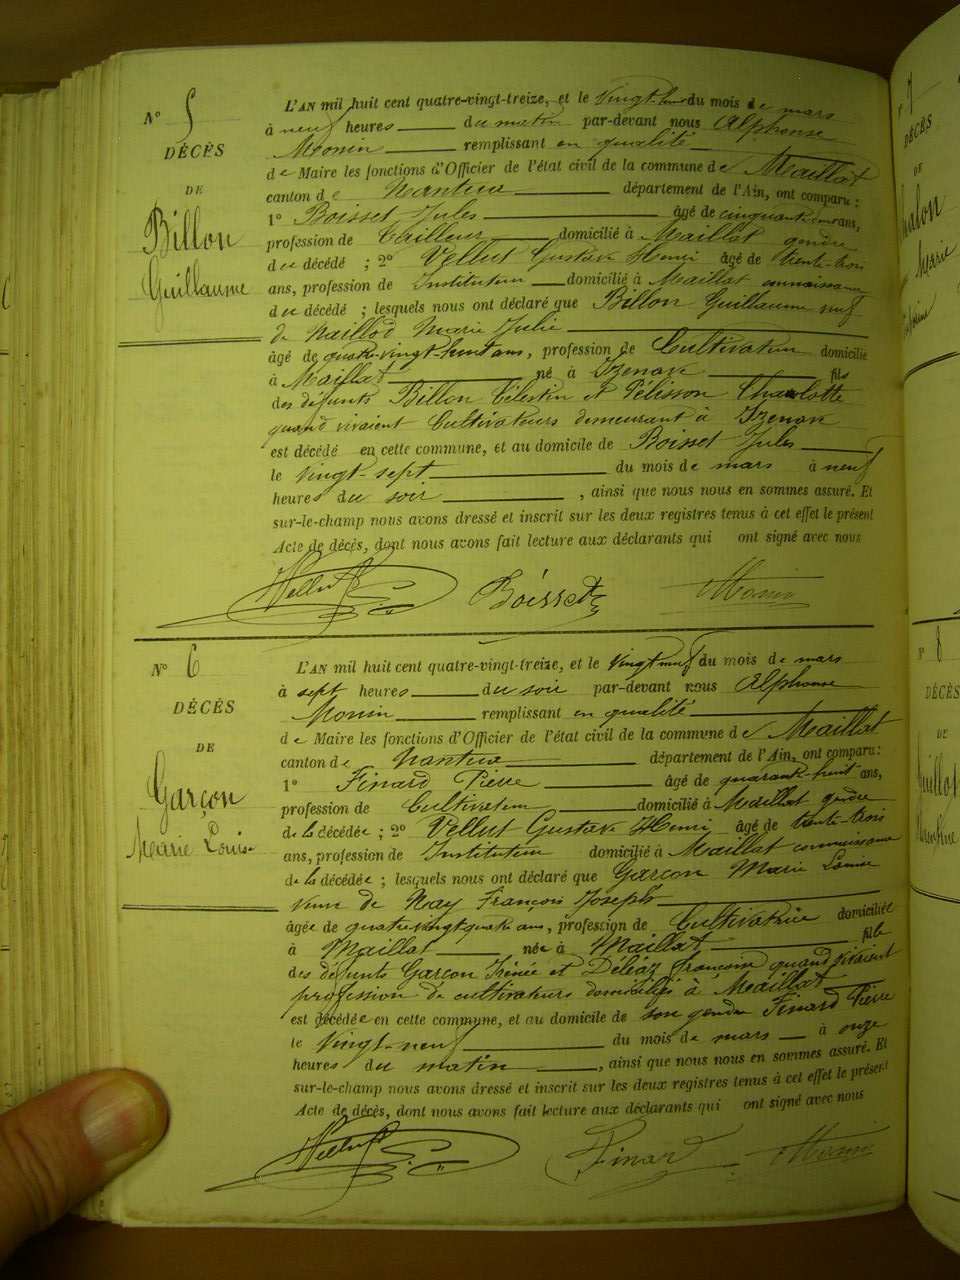 N° 5
DÉCÈS
DE
Billon
Guillaume
L'AN mil huit cent quatre-vingt-treize, et le vingt-huit du mois de mars
à neuf heures du matin par-devant nous Alphonse
Monin remplissant en qualité
de Maire les fonctions d'Officier de l'état civil de la commune de Maillat
canton de Nantua département de l'Ain, ont comparu :
1° Boisset Jules âgé de cinquante ans,
profession de Tailleur domicilié à Maillat gendre
du décédé ; 2° Vellut Gustave Henri âgé de trente-trois
ans, profession de Instituteur domicilié à Maillat connaissance
du décédé ; lesquels nous ont déclaré que Billon Guillaume veuf
de Naillod Marie Julie
âgé de quatre-vingt-huit ans, profession de Cultivateur domicilié
à Maillat né à Izenave fils
des défunts Billon Célestin et Pélisson Charlotte
quand vivaient Cultivateurs demeurant à Izenave
est décédé en cette commune, et au domicile de Boisset Jules
le vingt-sept du mois de mars à neuf
heures du soir , ainsi que nous nous en sommes assuré. Et
sur-le-champ nous avons dressé et inscrit sur les deux registres tenus à cet effet le présent
Acte de décès, dont nous avons fait lecture aux déclarants qui ont signé avec nous
Vellut Boisset Monin
N° 6
DÉCÈS
DE
Garçon
Marie Louise
L'AN mil huit cent quatre-vingt-treize, et le vingt neuf du mois de mars
à sept heures du soir par-devant nous Alphonse
Monin remplissant en qualité
de Maire les fonctions d'Officier de l'état civil de la commune de Maillat
canton de Nantua département de l'Ain, ont comparu :
1° Finard Pierre âgé de quarante-huit ans,
profession de Cultivateur domicilié à Maillat gendre
de la décédée ; 2° Vellut Gustave Henri âgé de trente-trois
ans, profession de Instituteur domicilié à Maillat connaissance
de la décédée ; lesquels nous ont déclaré que Garçon Marie Louise
veuve de Nay François Joseph
âgée de quatre-vingt-quatre ans, profession de Cultivatrice domiciliée
à Maillat née à Maillat fille
des défunts Garçon Irénée et Déléaz françoise quand vivaient
profession de cultivateurs domiciliés à Maillat
est décédée en cette commune, et au domicile de son gendre Finard Pierre
le Vingt-neuf du mois de mars à onze
heures du matin , ainsi que nous nous en sommes assuré. Et
sur-le-champ nous avons dressé et inscrit sur les deux registres tenus à cet effet le présent
Acte de décès, dont nous avons fait lecture aux déclarants qui ont signé avec nous
Vellut Finard Monin
7
DÉCÈS
DE
Chalon
Marie
N° 8
DÉCÈS
DE
Guillot